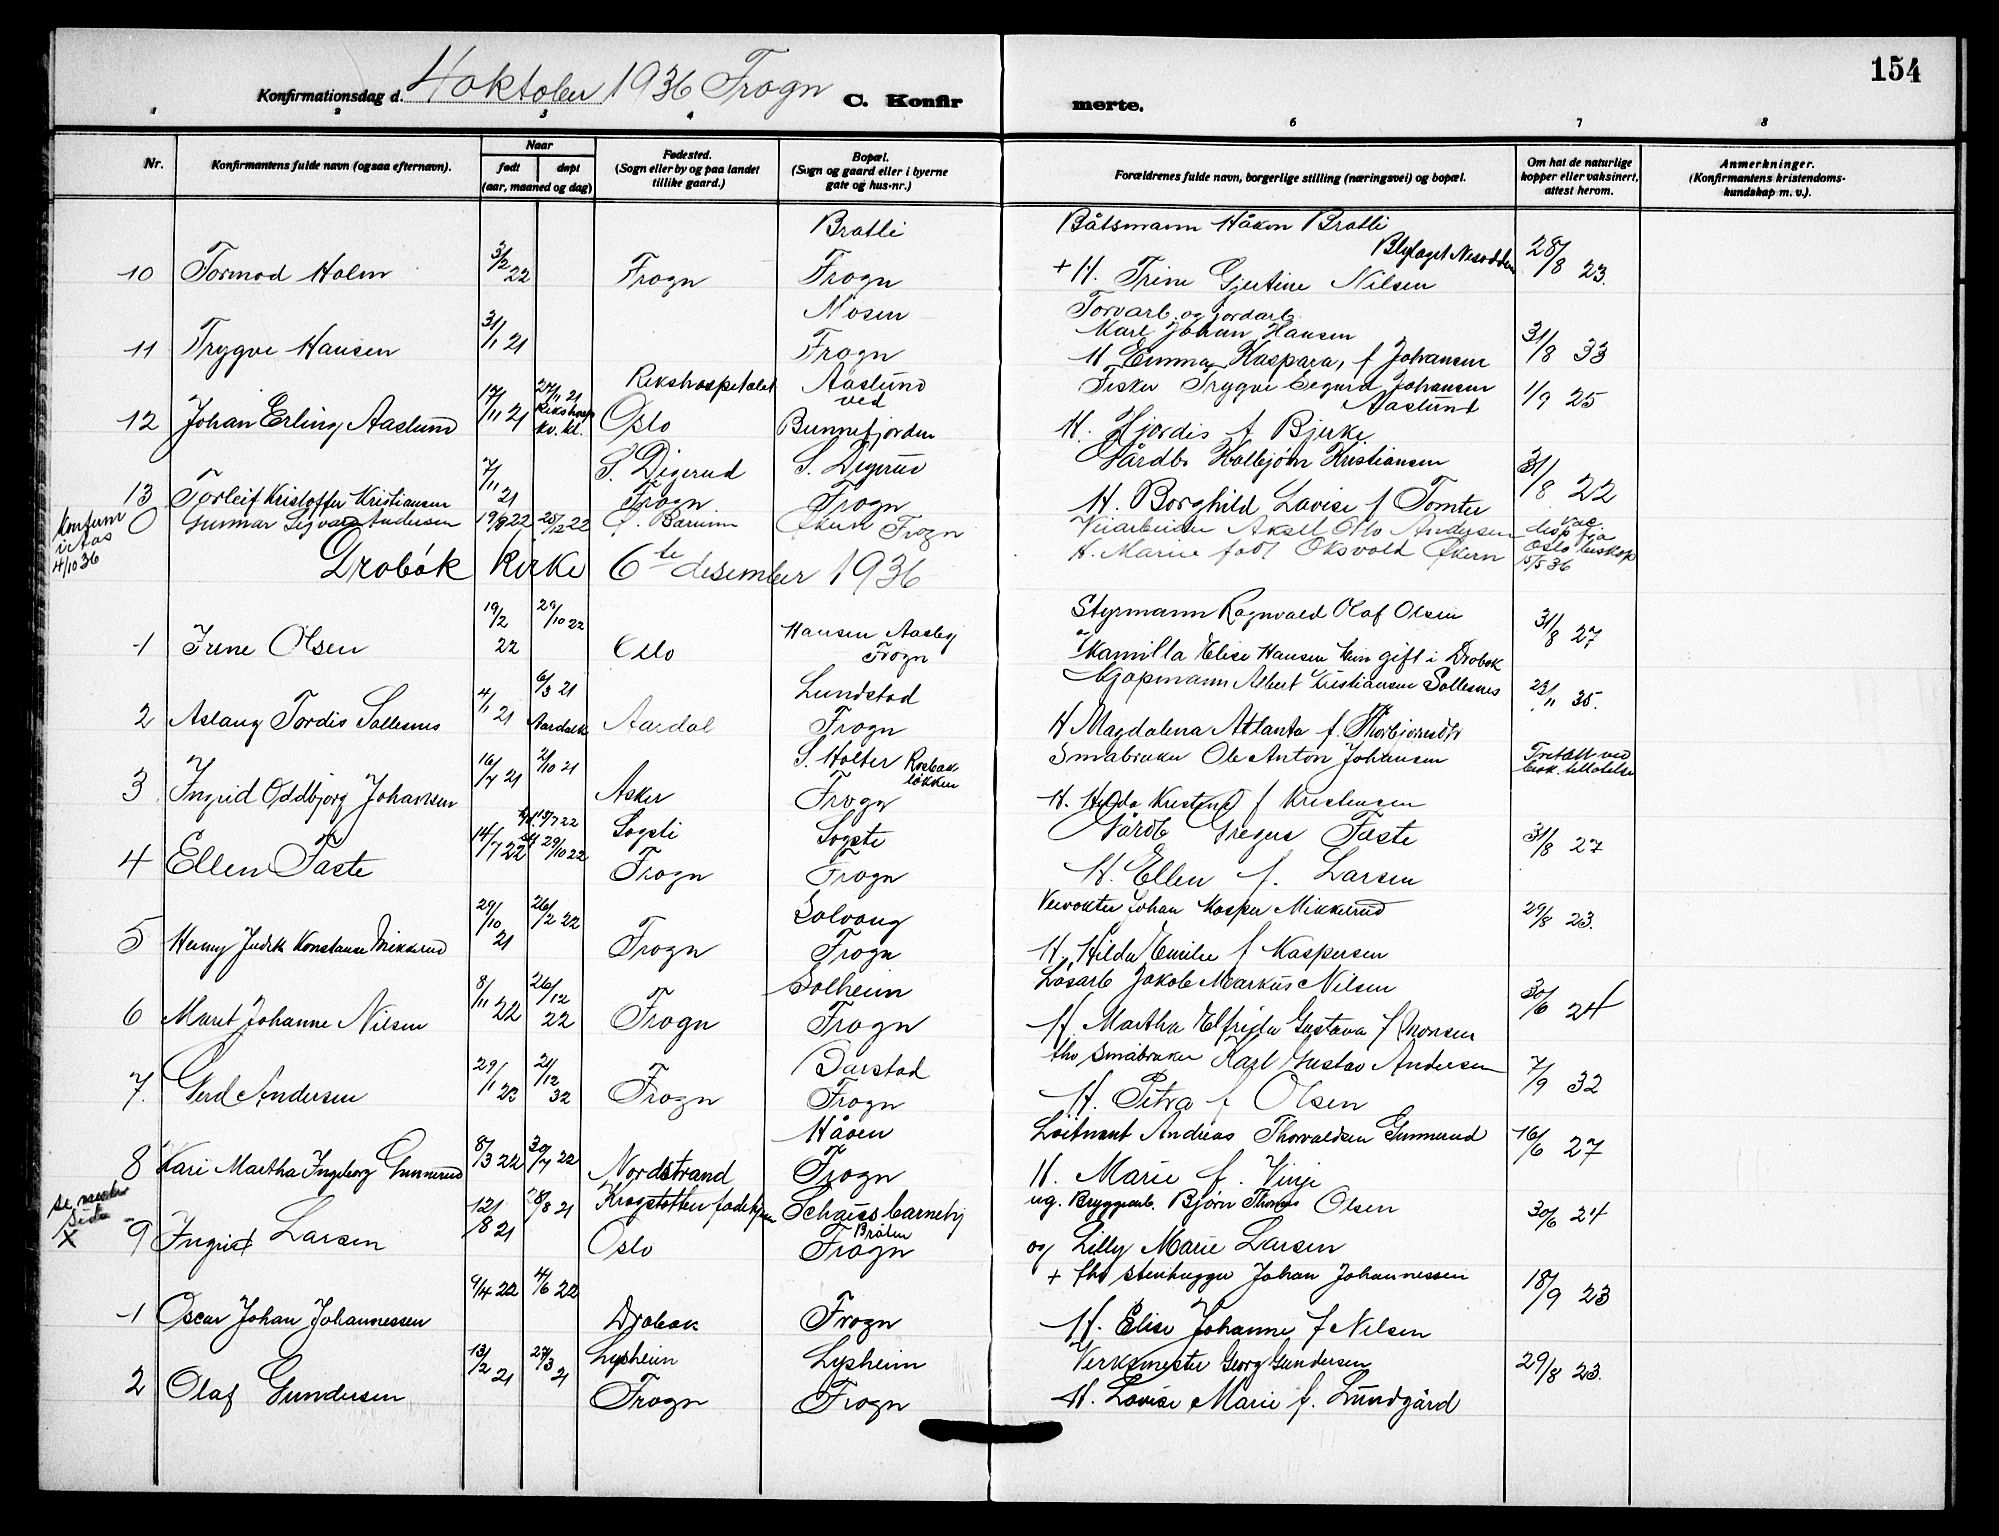 154
Konfirmationsdag d. 4 oktober 1936 Frogn C. Konfirmerte.
1 2 3 4 6 7 8
Nr. Konfirmantens fulde navn (ogsaa efternavn). Naar født døpt (aar, maaned og dag) Fødested. (Sogn eller by og paa landet tillike gaard.) Bopæl. (Sogn og gaard eller i byerne gate og hus-nr.) Forældrenes fulde navn, borgerlige stilling (næringsvei) og bopæl. Om hat de naturlige kopper eller vaksinert, attest herom. Anmerkninger. (Konfirmantens kristendomskundskap m. v.).
Bratli Båtsmann Håkon Bratli
Blylaget Nesodden
10 Tormod Holm 3/2 22 Frogn Frogn + H. Trine Gjertine Nilsen 28/8 23.
Mosen Torvarb. og jordarb.
Karl Johan Hansen
11 Trygve Hansen 31/1 21 Frogn H. Emma Kaspara, f Johansen 31/8 33
Rikshospitalet Aaslund Fisker Trygve Sigurd Johansen
ved Aaslund
12 Johan Erling Aaslund 17/11 21 27/11 21 Rikshosp kv. kl. Oslo Bunnefjorden H. Hjørdis f Bjerke 1/9 25
S. Digerud S. Digerud Gårdbr Halbjørn Kristiansen
13 Torleif Kristoffer Kristiansen 7/11 21 Frogn Frogn H. Borghild Lovise f Tomter 31/8 22
0 Gunnar Sigvard Andersen 19/8 22 25/2 22 Ø. Bærum Økern Frogn Veiarbeider Aksel Otto Andersen
H. Marie født Oksvold Økern
vac. disp fra Oslo biskop 5/5 36
4/10 36
Drøbak Kirke 6te desember 1936
Styrmann Ragnvald Olaf Olsen
1 Irene Olsen 19/2 22 29/10 22 Oslo Hansen Aasby Frogn og Kamilla Elise Hansen hun gift i Drøbak 31/8 27
Lundstad Kjøpmann Albert Kristiansen Sollesnes
2 Aslaug Tordis Sollesnes 4/1 21 6/3 21 Aardal k Aardal Frogn H Magdalena Atlanta f. 23/11 35.
S. Holter Rosbakløkken Småbruker Ole Anton Johansen
3 Ingrid Oddbjørg Johansen 16/7 21 2/10 21 Asker Frogn H. Hilda Kristine f Kristensen Fretatt ved
Sogsti Sogste Gårdb Gregus Faste
4 Ellen Faste 14/7 22 13/7 22 29/10 22 Frogn Frogn H. Ellen f. Larsen 31/8 27
Solvang Veivokter Johan Kasper Mikkelrud
5 Henny Judith Konstanse Mikkelrud 29/10 21 26/2 22 Frogn Frogn H. Hilda Emilie f Kaspersen 29/8 23.
Solheim Løsarb Jakob Markus Nilsen
6 Maret Johanne Nilsen 8/11 22 26/12 22 Frogn Frogn H. Martha Elfrida Gustava f Aronsen 30/6 24
Darstad fhv Småbruker Karl Gustav Andersen
7. Gerd Andersen 29/1 22 21/12 32 Frogn Frogn H. Petra f Olsen 7/9 32
Håven Løitnant Andreas Thorvaldsen Gunnerud
8 Kari Martha Ingeborg Gunnerud 8/3 22 30/7 22 Nordstrand Frogn H. Marie f. Vinje 16/6 27
se neste side X Krogstøtten fødehjem Schauss barnehj Bråten ug. Bryggearb. Bjørn Thomas Olsen
9 Ingrid Larsen 12/8 21 28/8 21 Oslo Frogn og Lilly Marie Larsen 30/6 24
+ fhv stenhugger Johan Johannessen
1 Oscar Johan Johannessen 9/4 22 4/6 22 Drøbak Frogn H. Elise Johanne f Nilsen 18/9 23
Lysheim Lysheim Verksmester Georg Gundersen
2 Olaf Gundersen 13/2 21 27/3 21 Frogn Frogn H. Lovise Marie f. Lundgård 29/8 23.